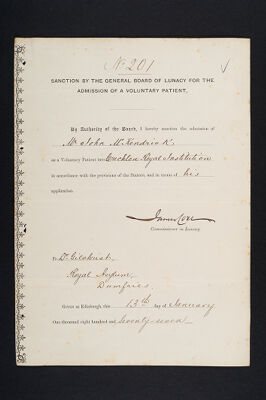 No 201
SANCTION BY THE GENERAL BOARD OF LUNACY FOR THE
ADMISSION OF A VOLUNTARY PATIENT,
By Authority of the Board, I hereby sanction the admission of
Mr John McKendrick
as a Voluntary Patient into Crichton Royal Institution
in accordance with the provision of the Statute, and in terms of his
application.
James Coxe
Commissioner in Lunacy.
To Dr Gilchrist,
Royal Asylum,
Dumfries.
Given at Edinburgh, this 13th day of January
One thousand eight hundred and seventy-seven.